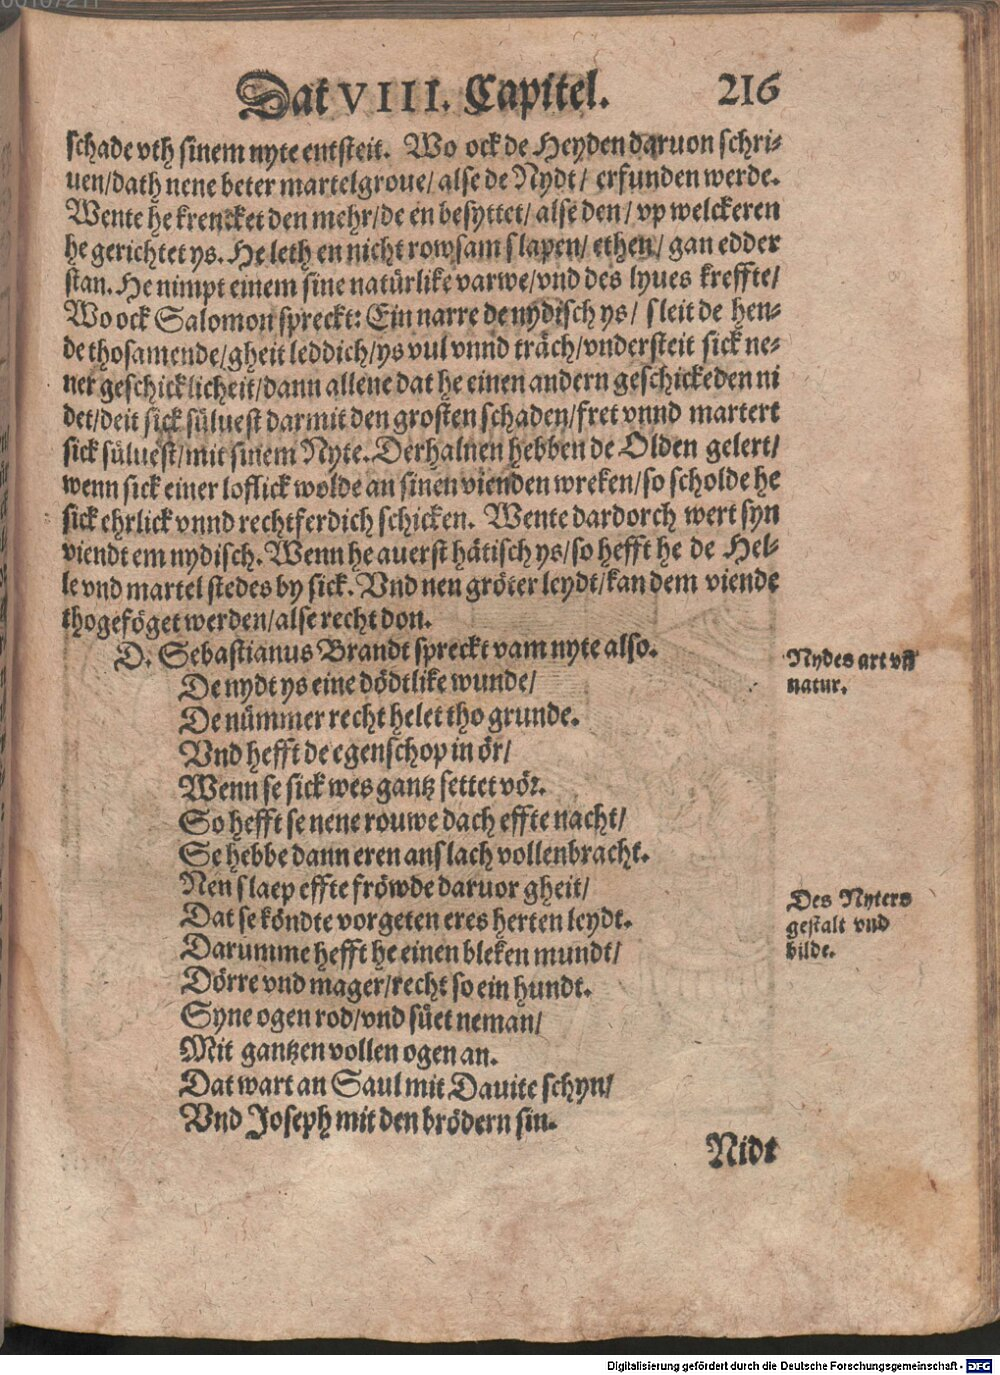 Dat VIII. Capitel. 216
schade vth sinem nyte entsteit. Wo ock de Heyden daruon schri-
uen/dath nene beter martelgroue/ alse de Nydt/ erfunden werde.
Wente he krencket den mehr/de en besyttet/ alse den/ vp welckeren
he gerichtet ys. He leth en nicht rowsam slapen/ ethen/ gan edder
stan. He nimpt einem sine natürlike varwe/vnd des lyues kreffte/
Wo ock Salomon spreckt: Ein narre de nydisch ys/ sleit de hen-
de thosamende/gheit leddich/ys vul vnnd träch/vndersteit sick ne-
ner geschicklicheit/dann allene dat he einen andern geschickeden ni
det/deit sick süluest darmit den grosten schaden/fret vnnd martert
sick süluest/mit sinem Nyte. Derhalnen hebben de Olden gelert/
wenn sick einer loflick wolde an sinen vienden wreken/so scholde he
sick ehrlick vnnd rechtferdich schicken. Wente dardorch wert syn
viendt em nydisch. Wenn he auerst hätisch ys/so hefft he de Hel-
le vnd martel stedes by sick. Vnd neu gröter leydt/kan dem viende
thogeföget werden/alse recht don.
D. Sebastianus Brandt spreckt vam nyte also.
Nydes art vñ
natur.
De nydt ys eine dödtlike wunde/
De nümmer recht helet tho grunde.
Vnd hefft de egenschop in ör/
Wenn se sick wes gantz settet vör.
So hefft se nene rouwe dach effte nacht/
Se hebbe dann eren anslach vollenbracht.
Nen slaep effte fröwde daruor gheit/
Dat se köndte vorgeten eres herten leydt.
Des Nyters
gestalt vnd
bilde.
Darumme hefft he einen bleken mundt/
Dörre vnd mager/recht so ein hundt.
Syne ogen rod/vnd süet neman/
Mit gantzen vollen ogen an.
Dat wart an Saul mit Dauite schyn/
Vnd Joseph mit den brödern sin.
Nidt
Digitalisierung gefördert durch die Deutsche Forschungsgemeinschaft - DFG